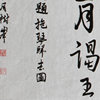 月謁王
題抱琴歸去圖
月樹